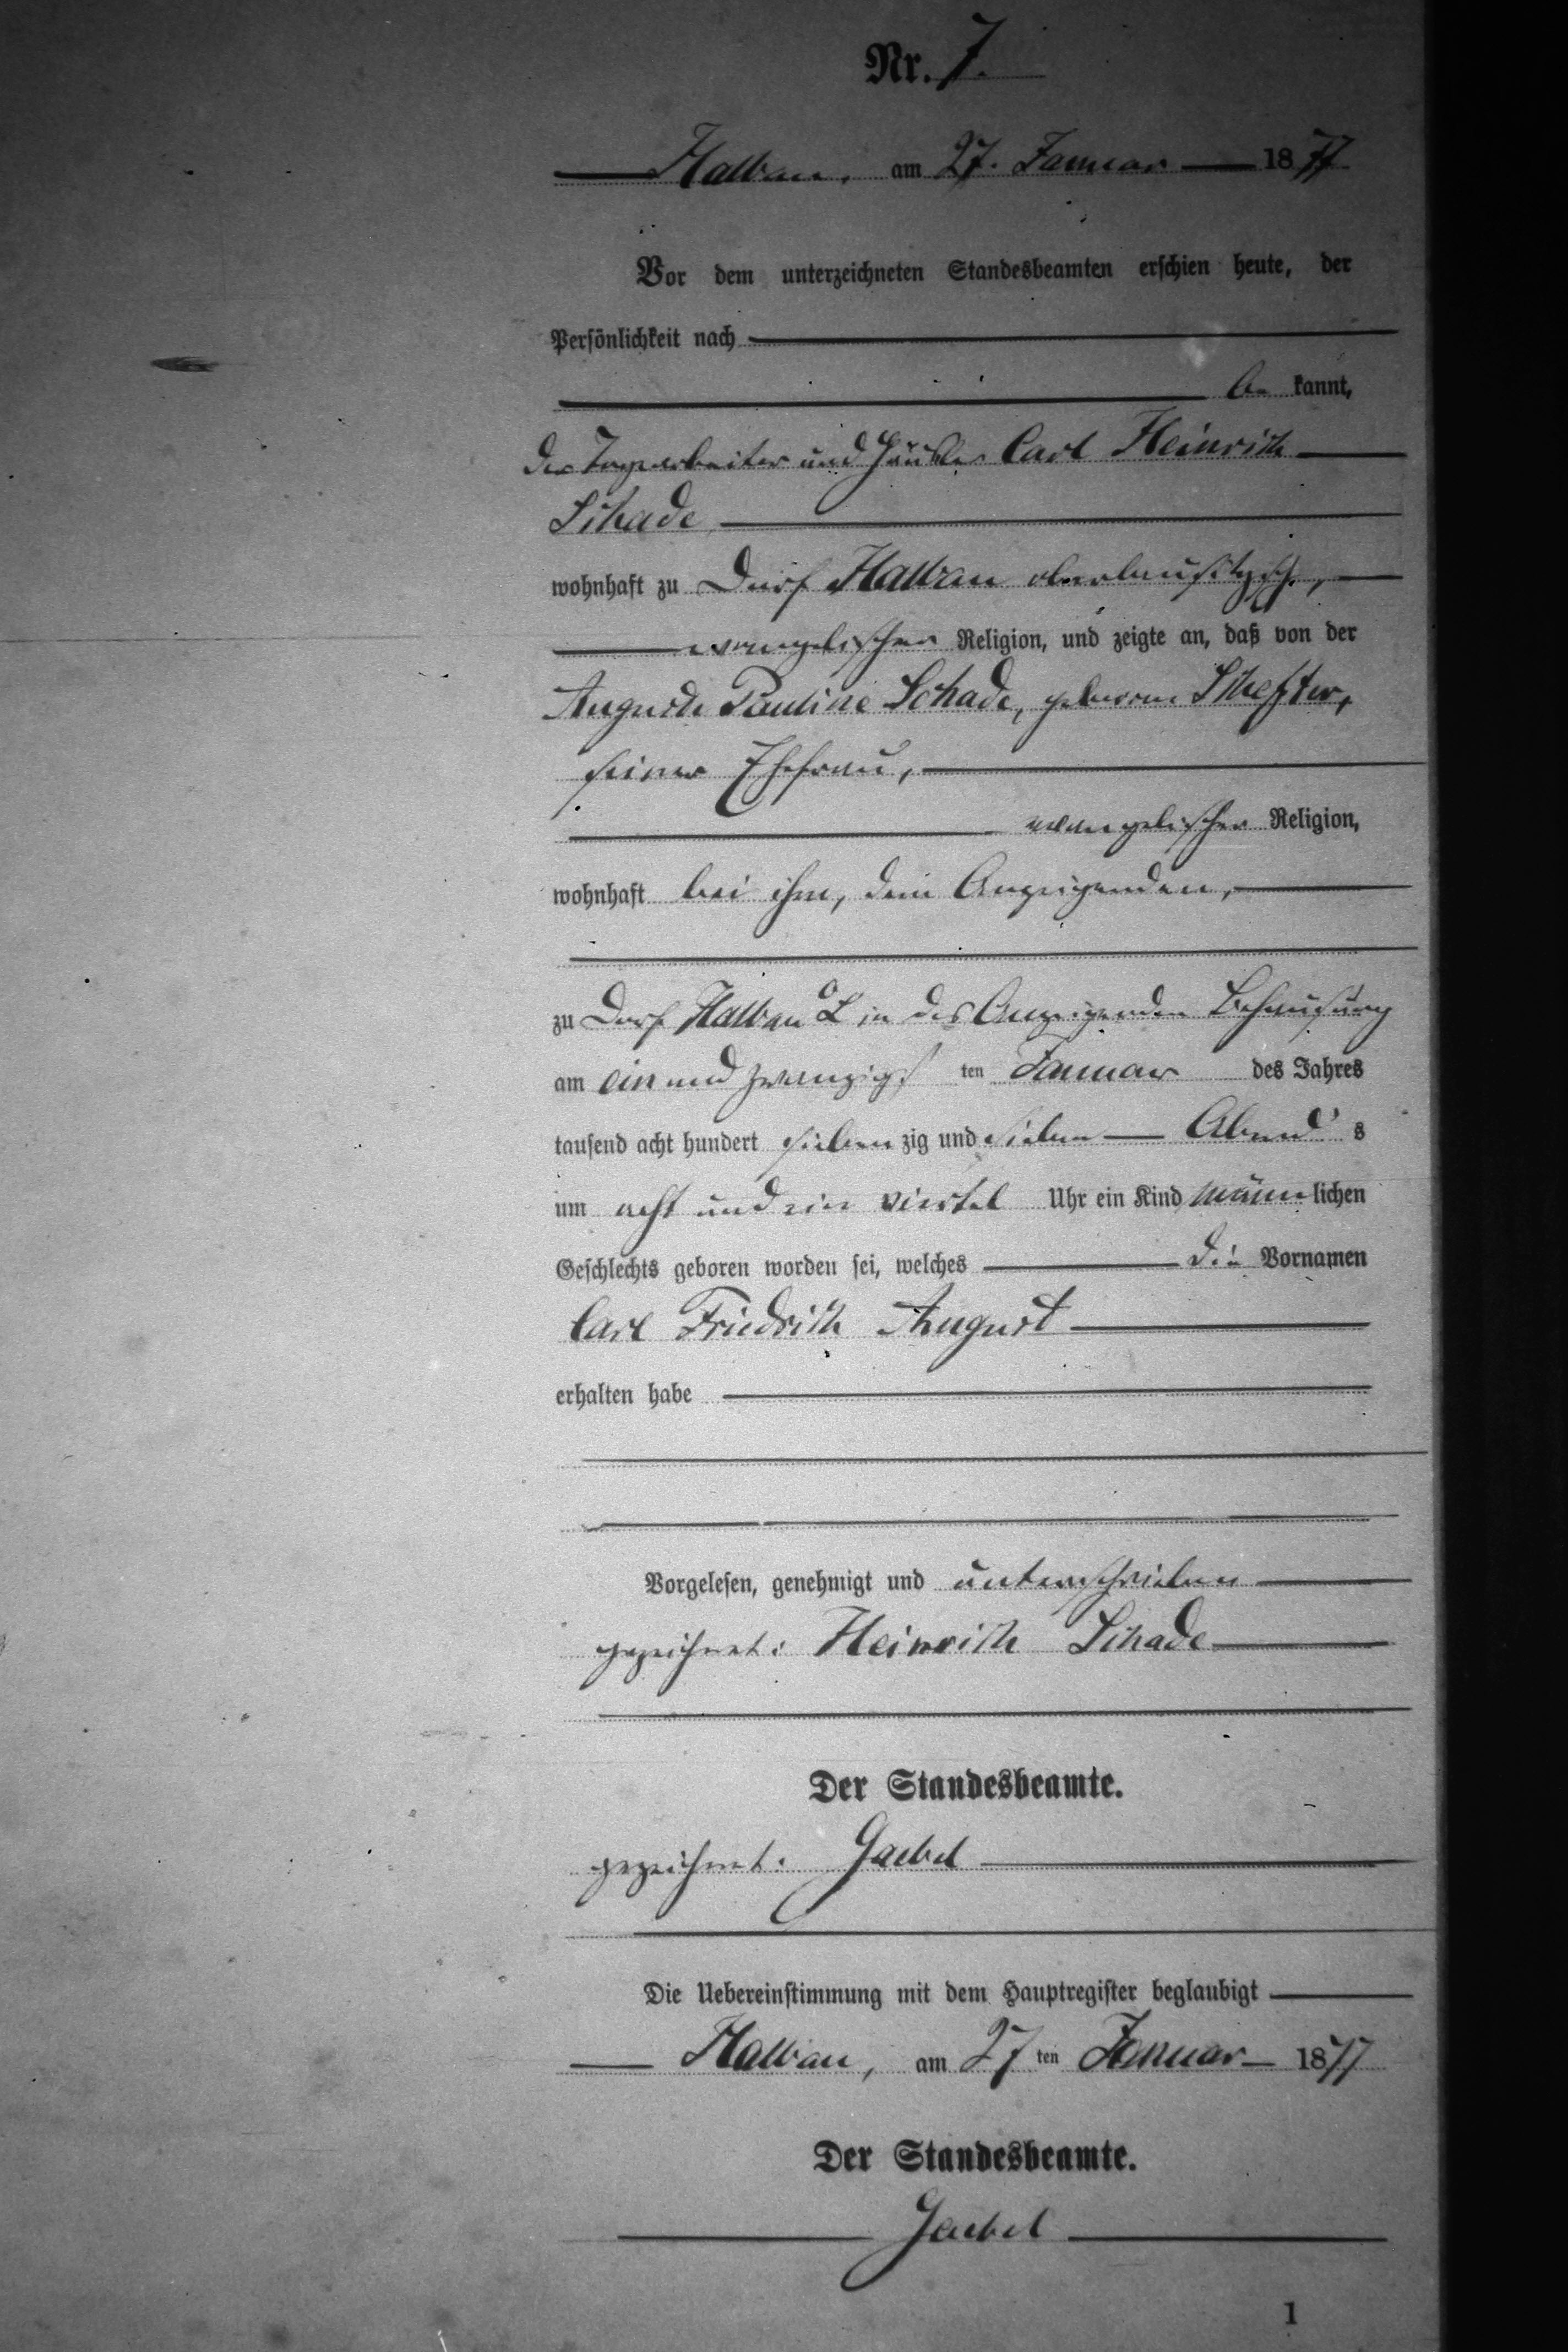 Nr. 7.
Halbau, am 27. Januar 1877
Vor dem unterzeichneten Standesbeamten erschien heute, der
Persönlichkeit nach
be kannt,
der Tagearbeiter und Häusler Carl Heinrich
Schade
wohnhaft zu Dorf Halbau oberlausitzsch.,
evangelischer Religion, und zeigte an, daß von der
Auguste Pauline Schade, geborene Schefter,
seiner Ehefrau,
evangelischer Religion,
wohnhaft bei ihm, dem Anzeigenden,
zu Dorf Halbau O L in des Anzeigenden Behausung
am ein und zwanzigs ten Januar des Jahres
tausend acht hundert sieben zig und sieben Abend s
um acht und ein viertel Uhr ein Kind männ lichen
Geschlechts geboren worden sei, welches die Vornamen
Carl Friedrich August
erhalten habe
Vorgelesen, genehmigt und unterschrieben
gezeichnet: Heinrich Schade
Der Standesbeamte.
gezeichnet: Gaebel
Die Uebereinstimmung mit dem Hauptregister beglaubigt
Halbau, am 27 ten Januar 1877
Der Standesbeamte.
Gaebel
1